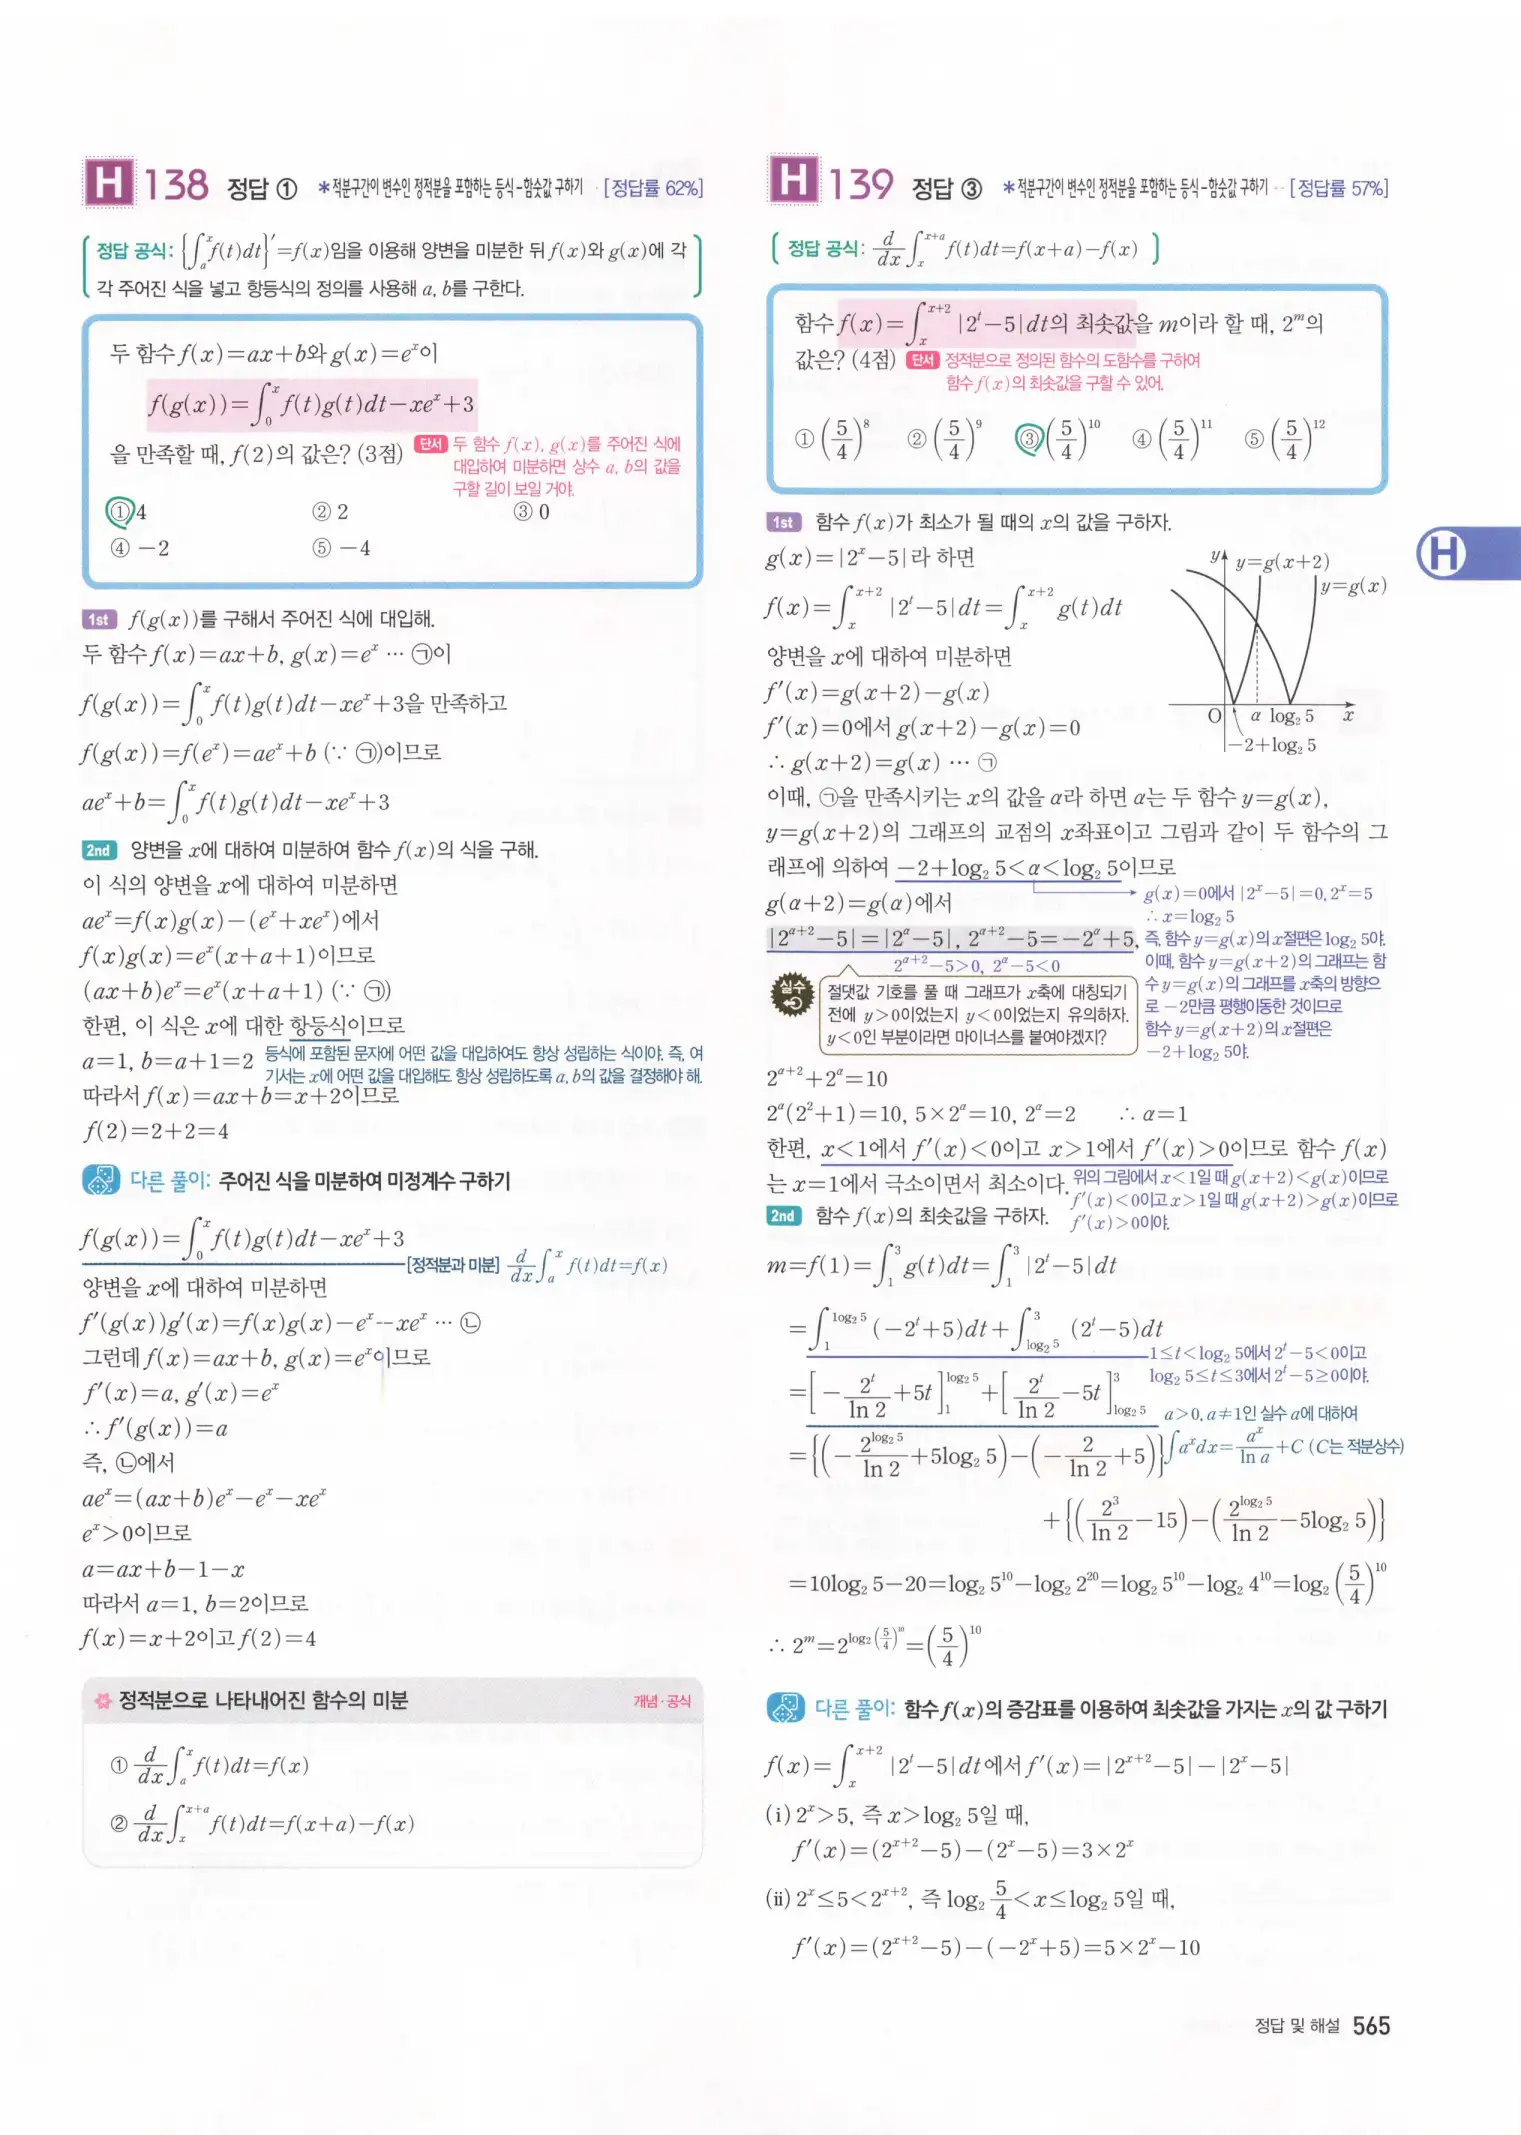 H 138 정답 ① *적분구간이 변수인 정적분을 포함하는 등식-함숫값 구하기 [정답률 62%]
정답 공식: {∫ₐˣ f(t)dt}′=f(x)임을 이용해 양변을 미분한 뒤 f(x)와 g(x)에 각
각 주어진 식을 넣고 항등식의 정의를 사용해 a, b를 구한다.
두 함수 f(x)=ax+b와 g(x)=eˣ이
f(g(x))=∫₀ˣ f(t)g(t)dt-xeˣ+3
을 만족할 때, f(2)의 값은? (3점)
단서 두 함수 f(x), g(x)를 주어진 식에
대입하여 미분하면 상수 a, b의 값을
구할 길이 보일 거야.
① 4 ② 2 ③ 0
④ -2 ⑤ -4
1st f(g(x))를 구해서 주어진 식에 대입해.
두 함수 f(x)=ax+b, g(x)=eˣ ⋯ ㉠이
f(g(x))=∫₀ˣ f(t)g(t)dt-xeˣ+3을 만족하고
f(g(x))=f(eˣ)=aeˣ+b (∵ ㉠)이므로
aeˣ+b=∫₀ˣ f(t)g(t)dt-xeˣ+3
2nd 양변을 x에 대하여 미분하여 함수 f(x)의 식을 구해.
이 식의 양변을 x에 대하여 미분하면
aeˣ=f(x)g(x)-(eˣ+xeˣ)에서
f(x)g(x)=eˣ(x+a+1)이므로
(ax+b)eˣ=eˣ(x+a+1) (∵ ㉠)
한편, 이 식은 x에 대한 항등식이므로
a=1, b=a+1=2
등식에 포함된 문자에 어떤 값을 대입하여도 항상 성립하는 식이야. 즉, 여
기서는 x에 어떤 값을 대입해도 항상 성립하도록 a, b의 값을 결정해야 해.
따라서 f(x)=ax+b=x+2이므로
f(2)=2+2=4
다른 풀이: 주어진 식을 미분하여 미정계수 구하기
f(g(x))=∫₀ˣ f(t)g(t)dt-xeˣ+3
[정적분과 미분] d/dx ∫ₐˣ f(t)dt=f(x)
양변을 x에 대하여 미분하면
f′(g(x))g′(x)=f(x)g(x)-eˣ-xeˣ ⋯ ㉡
그런데 f(x)=ax+b, g(x)=eˣ이므로
f′(x)=a, g′(x)=eˣ
∴ f′(g(x))=a
즉, ㉡에서
aeˣ=(ax+b)eˣ-eˣ-xeˣ
eˣ>0이므로
a=ax+b-1-x
따라서 a=1, b=2이므로
f(x)=x+2이고 f(2)=4
정적분으로 나타내어진 함수의 미분 개념·공식
① d/dx ∫ₐˣ f(t)dt=f(x)
② d/dx ∫ₓˣ⁺ᵃ f(t)dt=f(x+a)-f(x)
H 139 정답 ③ *적분구간이 변수인 정적분을 포함하는 등식-함숫값 구하기 [정답률 57%]
정답 공식: d/dx ∫ₓˣ⁺ᵃ f(t)dt=f(x+a)-f(x)
함수 f(x)=∫ₓˣ⁺² |2ᵗ-5|dt의 최솟값을 m이라 할 때, 2ᵐ의
값은? (4점) 단서 정적분으로 정의된 함수의 도함수를 구하여
함수 f(x)의 최솟값을 구할 수 있어.
① (5/4)⁸ ② (5/4)⁹ ③ (5/4)¹⁰ ④ (5/4)¹¹ ⑤ (5/4)¹²
1st 함수 f(x)가 최소가 될 때의 x의 값을 구하자.
g(x)=|2ˣ-5|라 하면
f(x)=∫ₓˣ⁺² |2ᵗ-5|dt=∫ₓˣ⁺² g(t)dt
양변을 x에 대하여 미분하면
f′(x)=g(x+2)-g(x)
f′(x)=0에서 g(x+2)-g(x)=0
∴ g(x+2)=g(x) ⋯ ㉠
y y=g(x+2)
y=g(x)
O α log₂ 5 x
-2+log₂ 5
이때, ㉠을 만족시키는 x의 값을 α라 하면 α는 두 함수 y=g(x),
y=g(x+2)의 그래프의 교점의 x좌표이고 그림과 같이 두 함수의 그
래프에 의하여 -2+log₂ 5<α<log₂ 5이므로
g(α+2)=g(α)에서
|2^(α+2)-5|=|2^α-5|, 2^(α+2)-5=-2^α+5,
2^(α+2)-5>0, 2^α-5<0
g(x)=0에서 |2ˣ-5|=0, 2ˣ=5
∴ x=log₂ 5
즉, 함수 y=g(x)의 x절편은 log₂ 5야.
이때, 함수 y=g(x+2)의 그래프는 함
수 y=g(x)의 그래프를 x축의 방향으
로 -2만큼 평행이동한 것이므로
함수 y=g(x+2)의 x절편은
-2+log₂ 5야.
실수
절댓값 기호를 풀 때 그래프가 x축에 대칭되기
전에 y>0이었는지 y<0이었는지 유의하자.
y<0인 부분이라면 마이너스를 붙여야겠지?
2^(α+2)+2^α=10
2^α(2²+1)=10, 5×2^α=10, 2^α=2 ∴ α=1
한편, x<1에서 f′(x)<0이고 x>1에서 f′(x)>0이므로 함수 f(x)
는 x=1에서 극소이면서 최소이다.
위의 그림에서 x<1일 때 g(x+2)<g(x)이므로
f′(x)<0이고 x>1일 때 g(x+2)>g(x)이므로
f′(x)>0이야.
2nd 함수 f(x)의 최솟값을 구하자.
m=f(1)=∫₁³ g(t)dt=∫₁³ |2ᵗ-5|dt
=∫₁^(log₂ 5) (-2ᵗ+5)dt+∫_(log₂ 5)^3 (2ᵗ-5)dt
1≤t<log₂ 5에서 2ᵗ-5<0이고
log₂ 5≤t≤3에서 2ᵗ-5≥0이야.
=[-2ᵗ/ln 2+5t]₁^(log₂ 5)+[2ᵗ/ln 2-5t]_(log₂ 5)^3
a>0, a≠1인 실수 a에 대하여
∫aˣdx=aˣ/ln a+C (C는 적분상수)
={(-2^(log₂ 5)/ln 2+5log₂ 5)-(-2/ln 2+5)}
+{(2³/ln 2-15)-(2^(log₂ 5)/ln 2-5log₂ 5)}
=10log₂ 5-20=log₂ 5¹⁰-log₂ 2²⁰=log₂ 5¹⁰-log₂ 4¹⁰=log₂ (5/4)¹⁰
∴ 2ᵐ=2^(log₂ (5/4)¹⁰)=(5/4)¹⁰
다른 풀이: 함수 f(x)의 증감표를 이용하여 최솟값을 가지는 x의 값 구하기
f(x)=∫ₓˣ⁺² |2ᵗ-5|dt에서 f′(x)=|2ˣ⁺²-5|-|2ˣ-5|
(i) 2ˣ>5, 즉 x>log₂ 5일 때,
f′(x)=(2ˣ⁺²-5)-(2ˣ-5)=3×2ˣ
(ii) 2ˣ≤5<2ˣ⁺², 즉 log₂ 5/4<x≤log₂ 5일 때,
f′(x)=(2ˣ⁺²-5)-(-2ˣ+5)=5×2ˣ-10
H
정답 및 해설 565